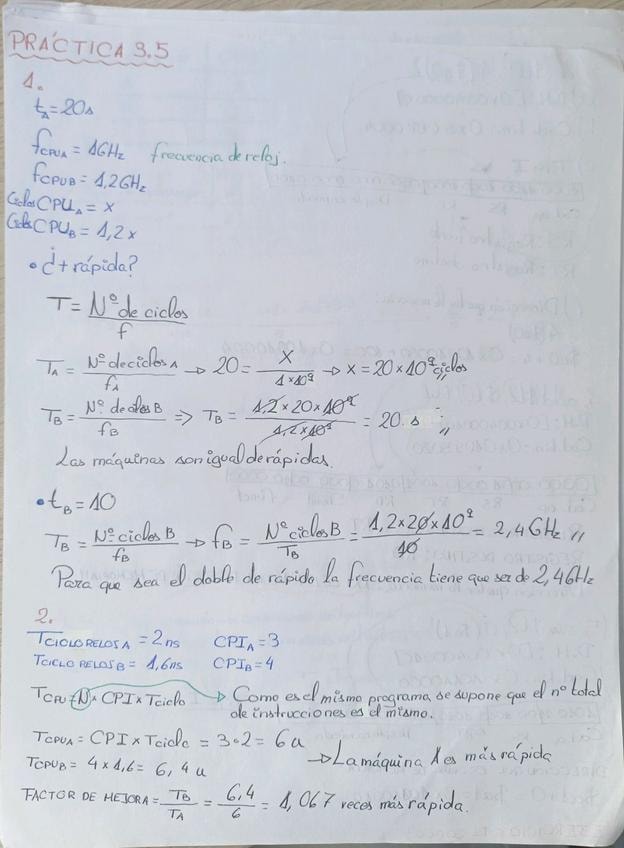 PRÁCTICA 3.5
1.
t_A = 20 s
f_CPUA = 1GHz frecuencia de reloj.
f_CPUB = 1,2GHz
Ciclos CPU_A = x
Ciclos CPU_B = 1,2x
• ¿+ rápida?
T = Nº de ciclos / f
T_A = Nº de ciclos A / f_A → 20 = X / 1×10⁹ → x = 20×10⁹ ciclos //
T_B = Nº de ciclos B / f_B ⇒ T_B = 1,2×20×10⁹ / 1,2×10⁹ = 20 s //
Las máquinas son igual de rápidas.
• t_B = 10
T_B = Nº ciclos B / f_B → f_B = Nº ciclos B / T_B = 1,2×20×10⁹ / 10 = 2,4GHz //
Para que sea el doble de rápido la frecuencia tiene que ser de 2,4GHz
2.
T_CICLO RELOS A = 2ns CPI_A = 3
T_CICLO RELOS B = 1,6ns CPI_B = 4
T_CPU = N × CPI × Tciclo → Como es el mismo programa, se supone que el nº total
de instrucciones es el mismo.
T_CPUA = CPI × Tciclo = 3·2 = 6u
→ La máquina A es más rápida
T_CPUB = 4×1,6 = 6,4u
FACTOR DE MEJORA = T_B / T_A = 6,4 / 6 = 1,067 veces más rápida.